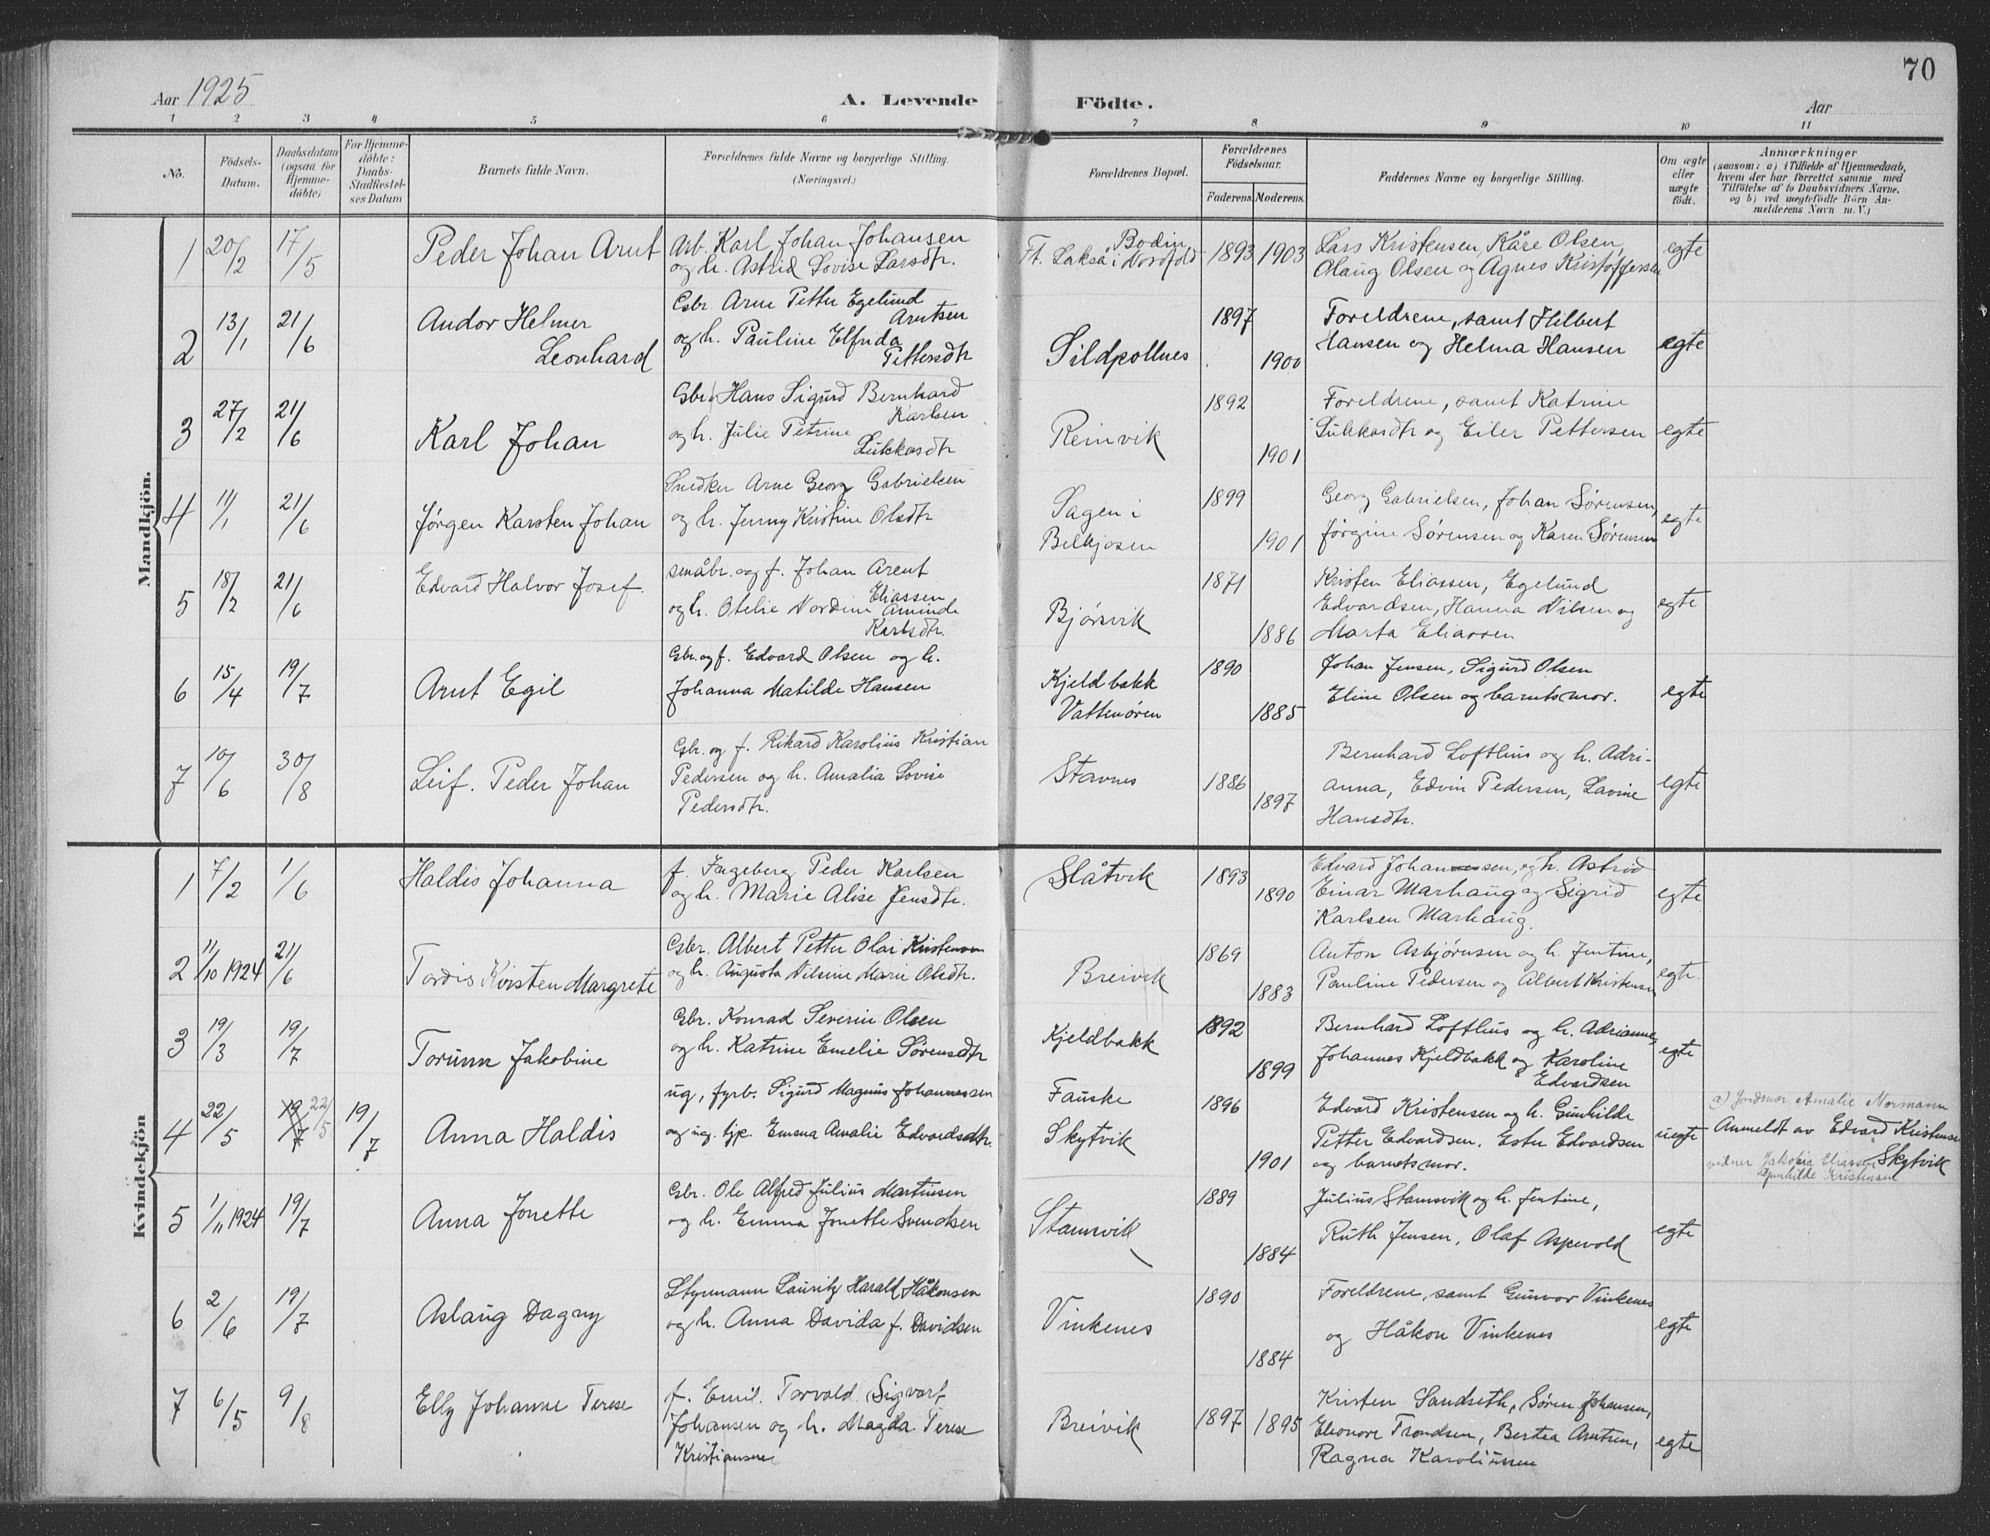 70
Aar 1925
A. Levende Födte.
Aar
1 2 3 4 5 6 7 8 9 10 11
No.
Födsels-Datum.
Daabsdatum (ogsaa for Hjemmedöbte)
For Hjemmedöbte: Daabs-Stadfæstelses Datum
Barnets fulde Navn.
Forældrenes fulde Navne og borgerlige Stilling.
(Næringsvei.)
Forældrenes Bopæl.
Forældrenes Födselsaar.
Faderens. Moderens.
Faddernes Navne og borgerlige Stilling.
Om ægte eller uægte födt.
Anmærkninger
(saasom: a) i Tilfælde af Hjemmedaab, hvem der har forrettet samme med Tilföielse af to Daabsvidners Navne, og b) ved uegtefödte Börn Anmelderens Navn m. V.)
Mandkjön.
1 20/2 17/5 Peder Johan Arnt Arb. Karl Johan Johansen Bodin 1893 1903 Lars Kristensen, Kåre Olsen, egte
og h. Astrid Lovise Larsdtr. Ft. Lakså i Nordfold Olaug Olsen og Agnes Kristoffersen
2 13/1 21/6 Andor Helmer Gbr Arne Petter Egelund 1897 Foreldrene, samt Hilbert
Leonhard Arntsen
og h. Pauline Elfrida Sildpollnes 1900 Hansen og Helma Hansen egte
Pettersdtr
3 27/2 21/6 Karl Johan Gbr Hans Sigurd Bernhard 1892 Foreldrene, samt Katrine
Karlsen
og h. Julie Petrine Reinvik 1901 Lukkasdtr og Eiler Pettersen egte
Lukkasdtr
4 11/1 21/6 Jørgen Karsten Johan Snedker Arne Georg Gabrielsen Hagen i 1899 Georg Gabrielsen, Johan Sørensen,
og h. Jenny Kristine Olsdtr 1901 Jørgine Sørensen og Karen Sørensen egte
5 18/2 21/6 Edvard Halvor Josef. småbr. og f. Johan Arent 1871 Kristen Eliassen, Egelund
Eliassen
og h. Otelie Nordine Aminda Bjørsvik Edvardsen, Hanna Nilsen og egte
Karlsdtr. 1886 Marta Eliassen
6 15/4 19/7 Arnt Egil Gbr. og f. Edvard Olsen og h. Kjeldbakk 1890 Johan Jensen, Sigurd Olsen
Johanna Matilde Hansen Vattenøren 1885 Eline Olsen og barnets mor. egte
7 10/6 30/8 Leif. Peder Johan Gbr. og f. Rikard Karolius Kristian Stavnes Bernhard Lofthus og h. Adri-
Pedersen og h. Amalia Lovise 1886 anna, Edvin Pedersen, Lavine egte
Pedersdtr. 1897 Hansdtr.
Kvindekjön
1 7/2 1/6 Haldis Johanna f. Fageberg Peder Karlsen Slåtvik 1893 Edvard Johansen, og h. Astrid
og h. Marie Alise Jensdtr. 1890 Einar Marhaug og Sigrid egte
Karlsen Marhaug.
2 11/10 1924 21/6 Tordis Kirsten Margrete Gbr. Albert Petter Olai Kristensen 1869 Anton Asbjørnsen og h. Jentine,
og h. Augusta Nilsine Marie Olsdtr. Breivik 1883 Pauline Pedersen og Albert Kristensen egte
3 19/3 19/7 Torunn Jakobine Gbr. Konrad Severin Olsen Kjeldbakk 1892 Bernhard Lofthus og h. Adrianne,
og h. Katrine Emelie Sørensdtr 1899 Johannes Kjeldbakk og Karoline egte
Edvardsen
4 22/5 19/7 22/5 19/7 Anna Haldis ug, fyrb. Sigurd Magnus Johannessen Fauske 1896 Edvard Kristensen og h. Gunhilde a) Jordmor Amalie Normann
og ug. tjp. Emma Amalie Edvardsdtr. Skytvik Petter Edvardsen, Ester Edvardsen uegte Anmeldt av Edvard Kristensen
1901 og barnets mor. Skytvik
vidner Jakobia Eliassen
Gunhilde Kristensen
5 1/11 1924 19/7 Anna Jonette Gbr. Ole Alfred Julius Martinsen Stamsvik 1889 Julius Stamsvik og h. Jentine,
og h. Emma Jonette Svendsen 1884 Ruth Jensen, Olaf Aspevold egte
6 2/6 19/7 Aslaug Dagny Styrmann Lauritz Harald Håkonsen Vinkenes 1890 Foreldrene, samt Gunvor Vinkenes
og h. Anna Davida f. Davidsen 1884 og Håkon Vinkenes egte
7 6/5 9/8 Elly Johanne Terese f. Emil. Torvald Sigvart Breivik 1897 1895 Kristen Sandseth, Søren Johansen,
Johansen og h. Magda Terese Eleonore Trondsen, Bertea Arntsen, egte
Kristiansen Ragna Karoliussen